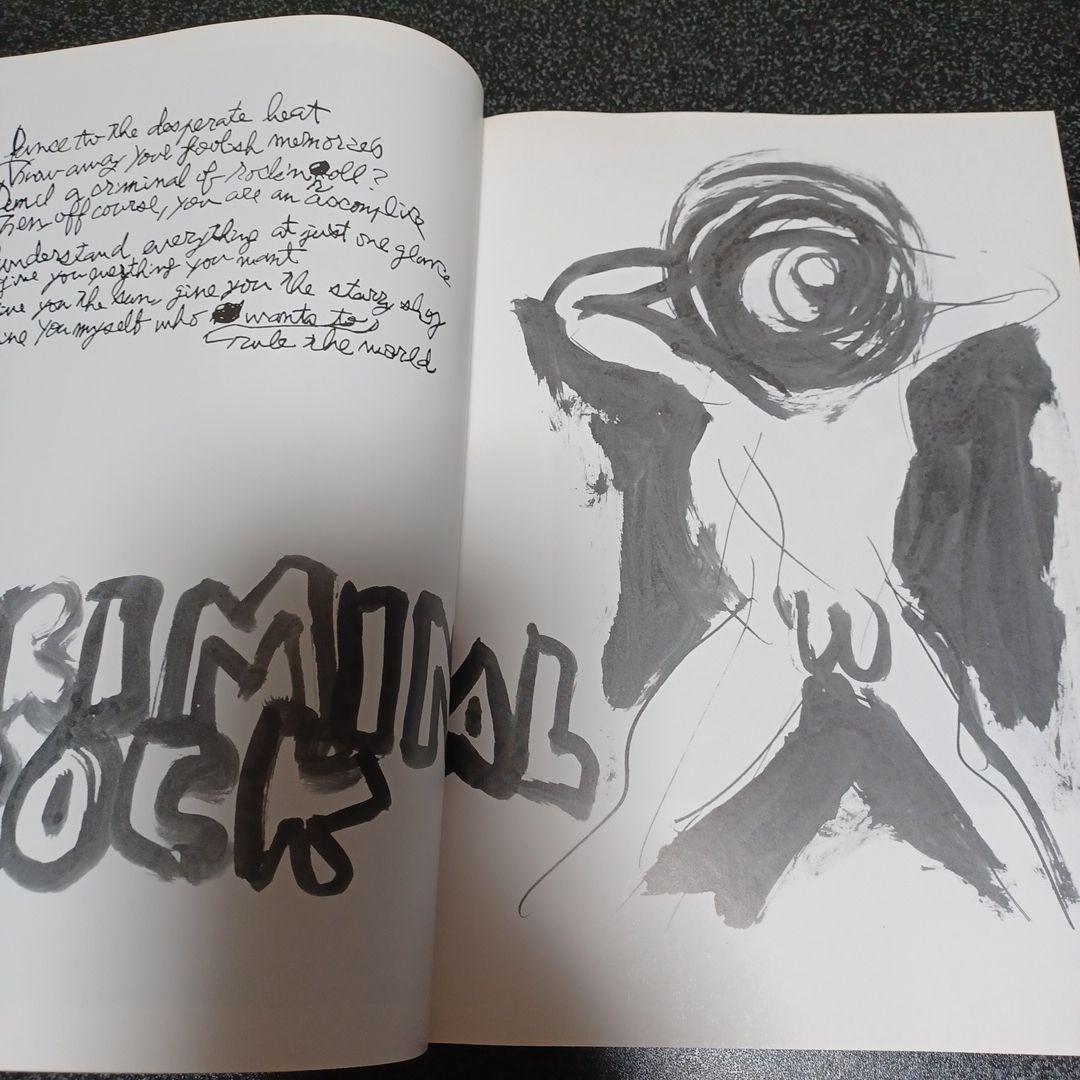 Dance to the desperate heat
Throw away your foolish memorzes
Demcl a criminal of rock'n roll?
Then off course, you are an accomplice
understand everything at just one glance
give you everything you want
give you the sun, give you the starry sky
give you myself who wants to
rule the world
CRIMINAL
ROCK